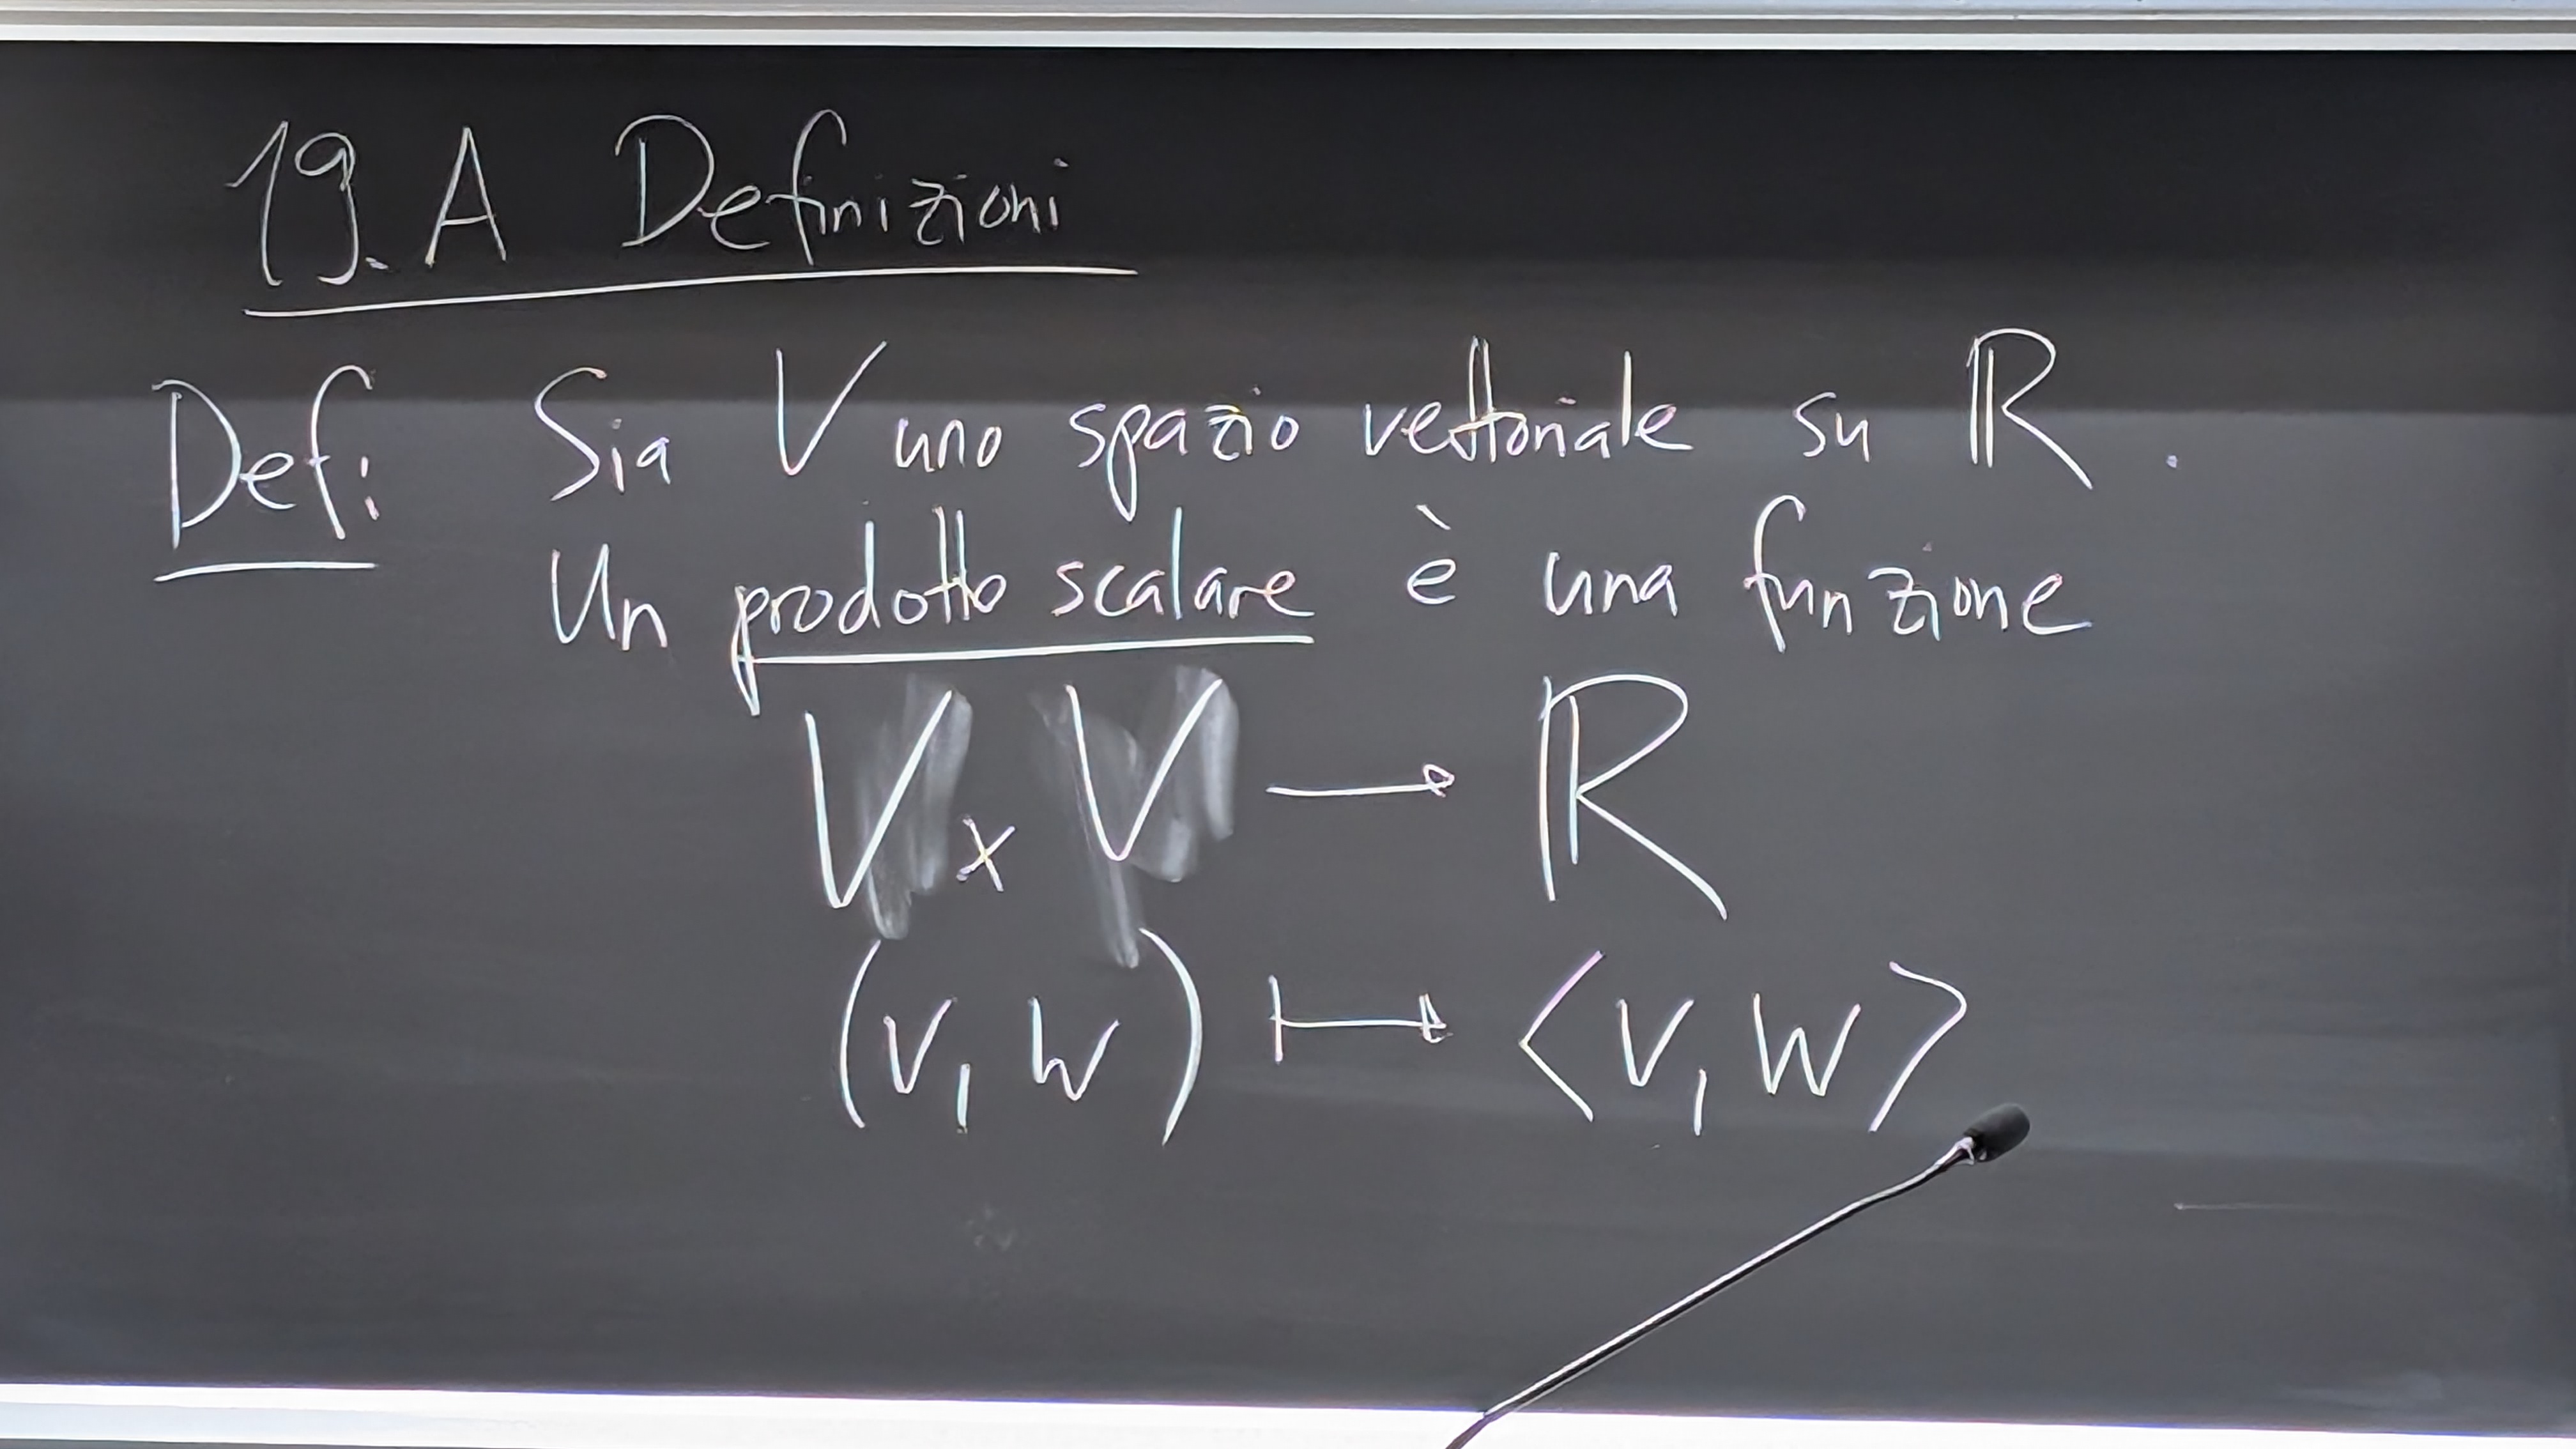 19.A Definizioni
Def: Sia V uno spazio vettoriale su ℝ.
Un prodotto scalare è una funzione
V × V → ℝ
(v, w) ↦ ⟨v, w⟩